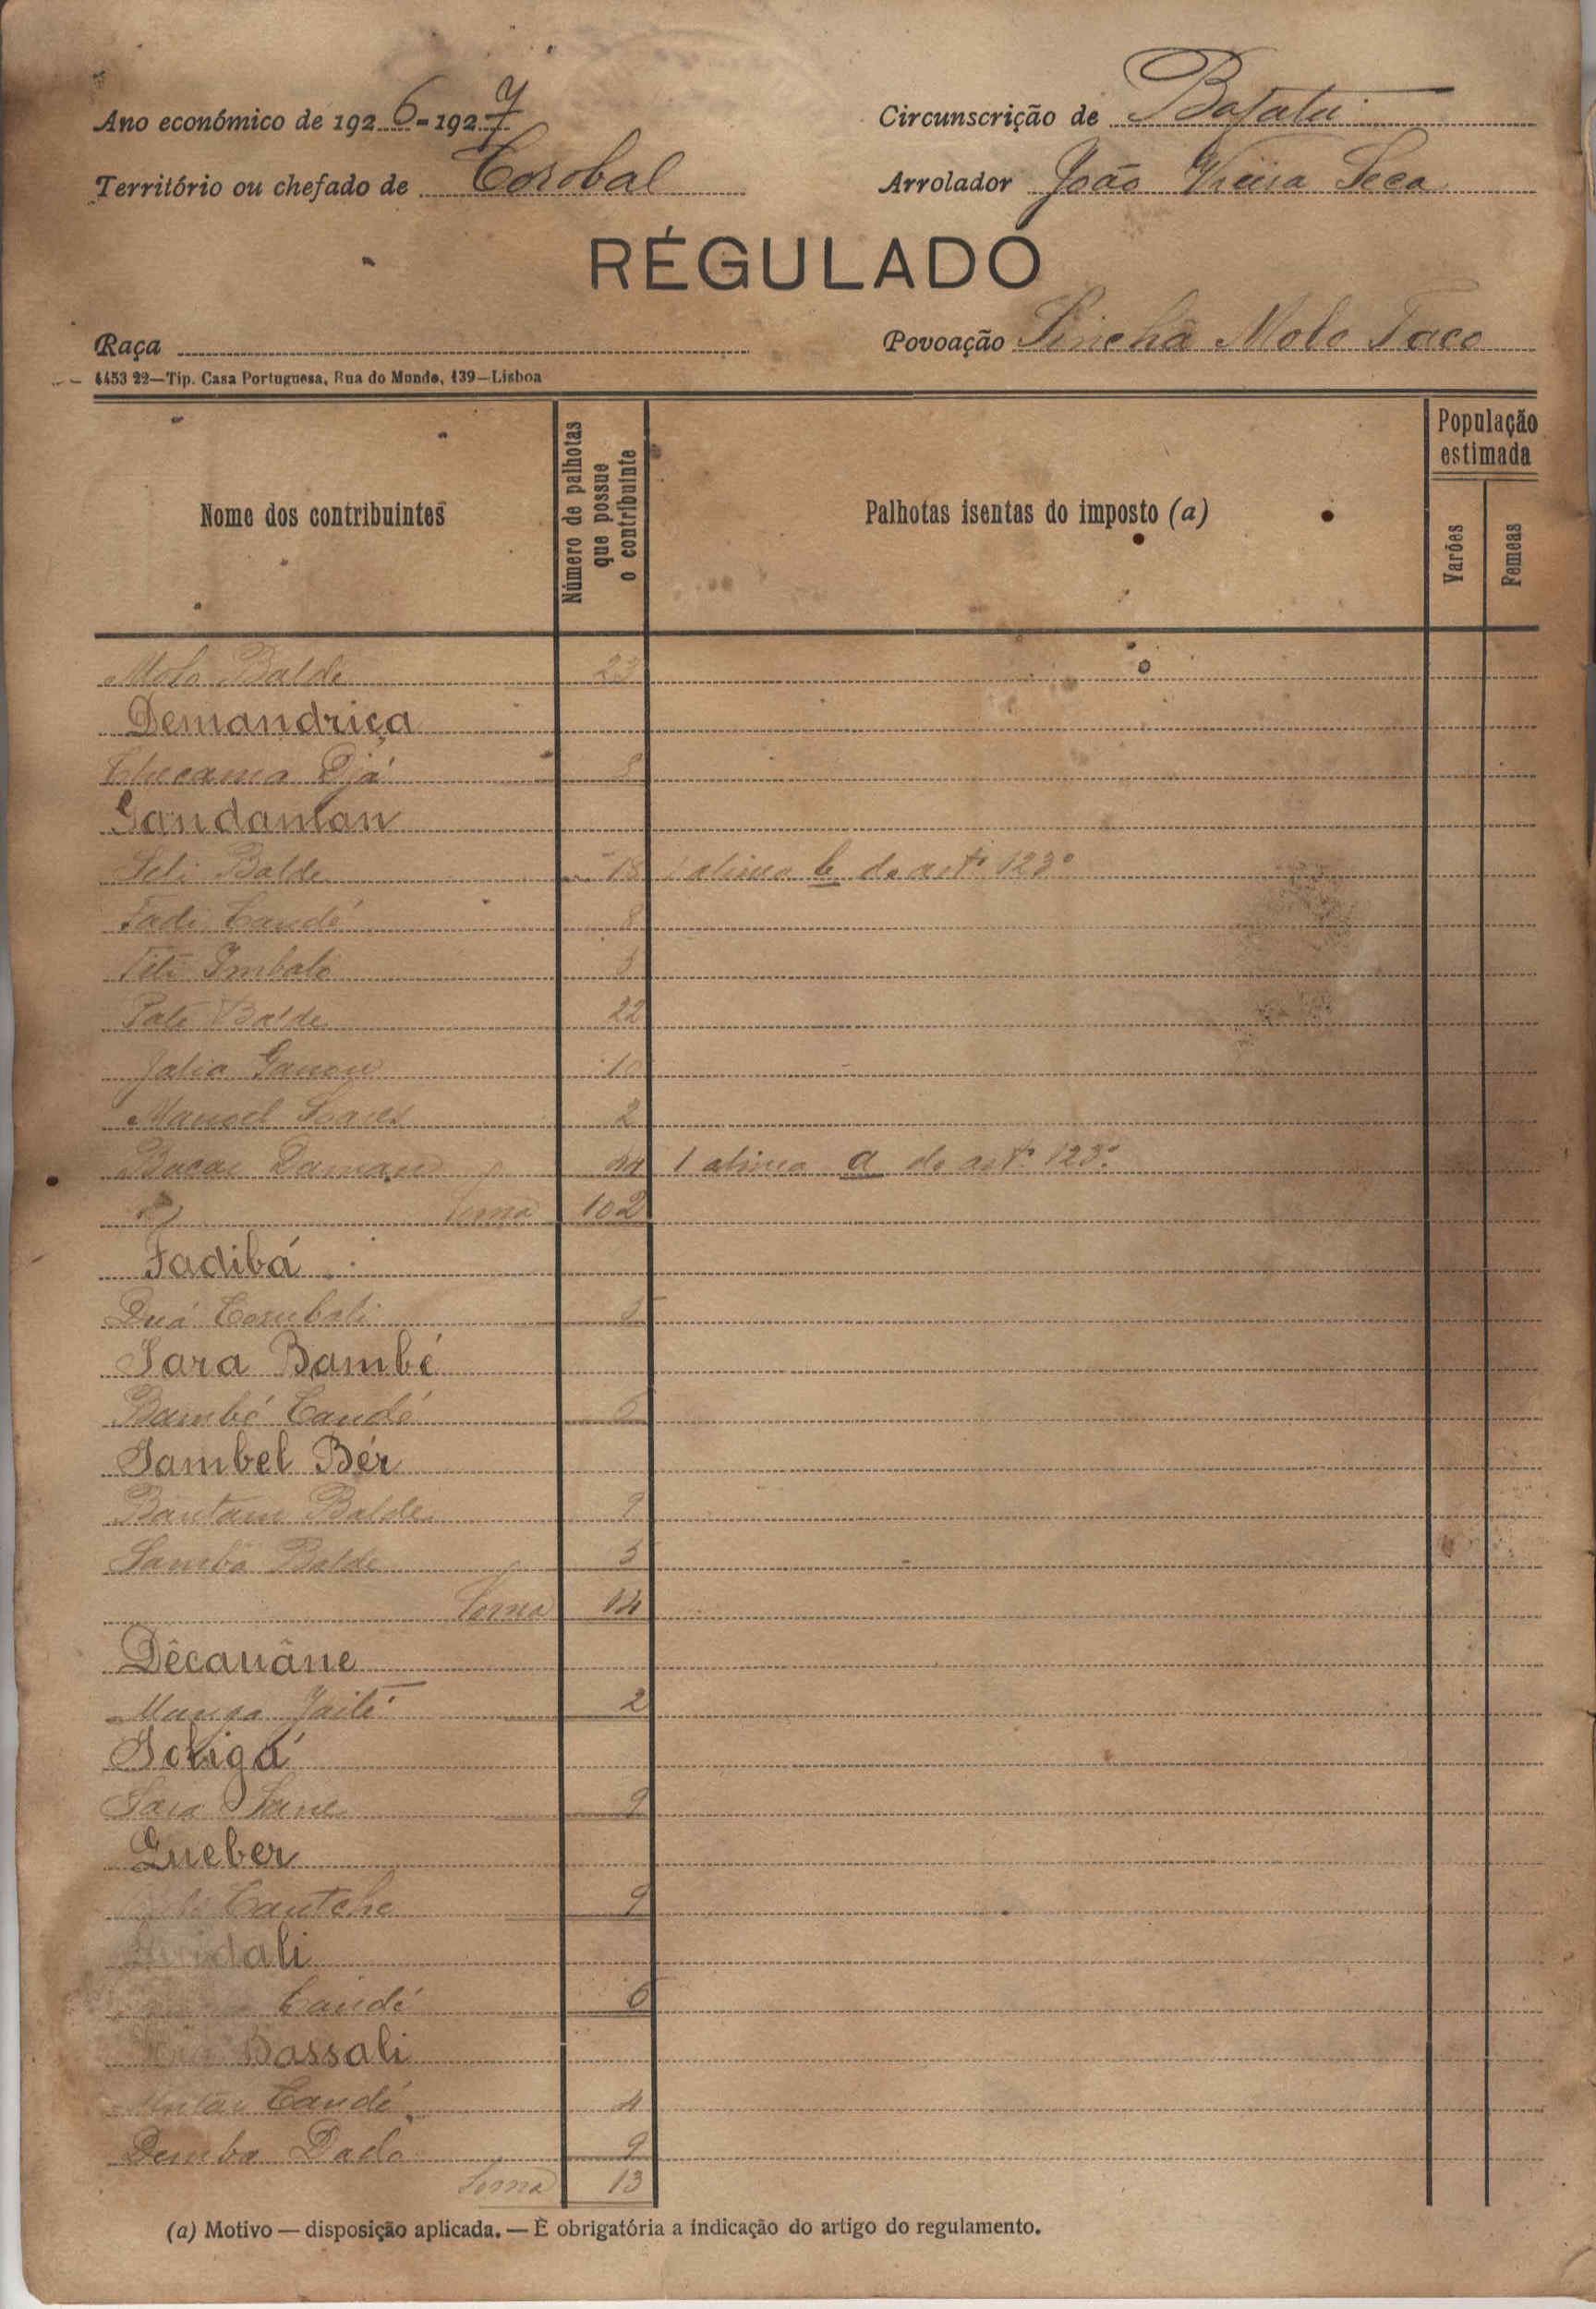 Ano económico de 1926-1927
Circunscrição de Bafatá
Território ou chefado de Corobal
Arrolador João Vieira Seca
RÉGULADO
Raça
Povoação Sinchã Molo Taco
4453 22—Tip. Casa Portuguesa, Rua do Mundo, 139—Lisboa
Nome dos contribuintes
Número de palhotas que possue o contribuinte
Palhotas isentas do imposto (a)
População estimada
Varões
Femeas
Molo Balde 23
Demandriça
Djá
Gandaman
Seli Balde 18 1 alinea b do artº 123º
Fadi Candé 8
Titi Imbalo
Paté Balde 22
Jalia 10
Manoel Soares 2
Bacar 1 alinea a do artº 123º
Soma 102
Fadibá
Corubali 5
Sara Bambé
Bambé Candé
Sambel Bér
Bantam Balde 9
Samba Balde 5
Soma 14
Dêcauâne
Mamga Jaité 2
Soligá
Sara Sane 9
Gueber
Cautche 9
dali
Candé 6
Bassali
Candé 4
Demba Dado 9
Soma 13
(a) Motivo — disposição aplicada. — É obrigatória a indicação do artigo do regulamento.